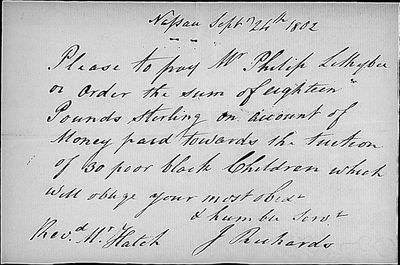 Nassau Septr 24th 1802
Please to pay Mr Philip Lethyber
or order the sum of eighteen
Pounds Sterling on account of
Money paid towards the tuition
of 30 poor black Children which
will oblige your most obedt
& humble Servt
Revd Mr Hatch J Richards